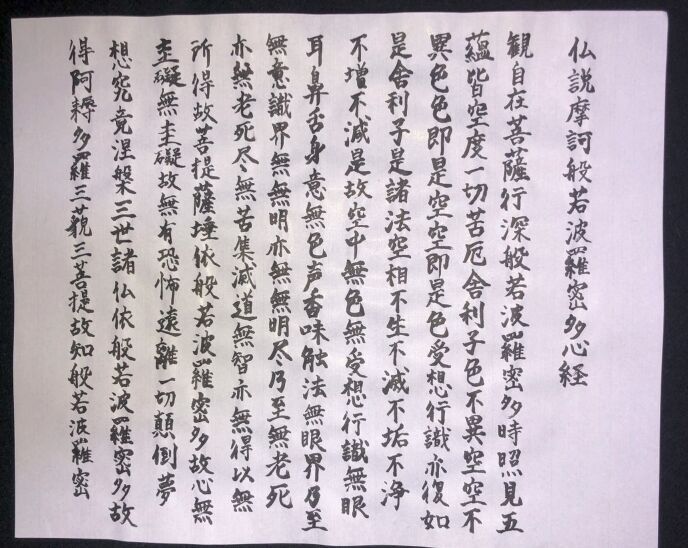 仏説摩訶般若波羅密多心経
観自在菩薩行深般若波羅密多時照見五
蘊皆空度一切苦厄舎利子色不異空空不
異色色即是空空即是色受想行識亦復如
是舎利子是諸法空相不生不滅不垢不浄
不増不減是故空中無色無受想行識無眼
耳鼻舌身意無色声香味触法無眼界乃至
無意識界無無明亦無無明尽乃至無老死
亦無老死尽無苦集滅道無智亦無得以無
所得故菩提薩埵依般若波羅密多故心無
罣礙無罣礙故無有恐怖遠離一切顛倒夢
想究竟涅槃三世諸仏依般若波羅密多故
得阿耨多羅三藐三菩提故知般若波羅密